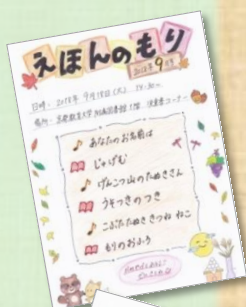 えほんのもり
2018年9月
日時・2018年9月18日(火) 14:30〜
場所・京都教育大学附属図書館1階 休憩コーナー
♪ あなたのお名前は
じゅげむ
♪ げんこつ山のたぬきさん
うそつきのつき
♪ こぶたたぬききつねねこ
もりのおふろ